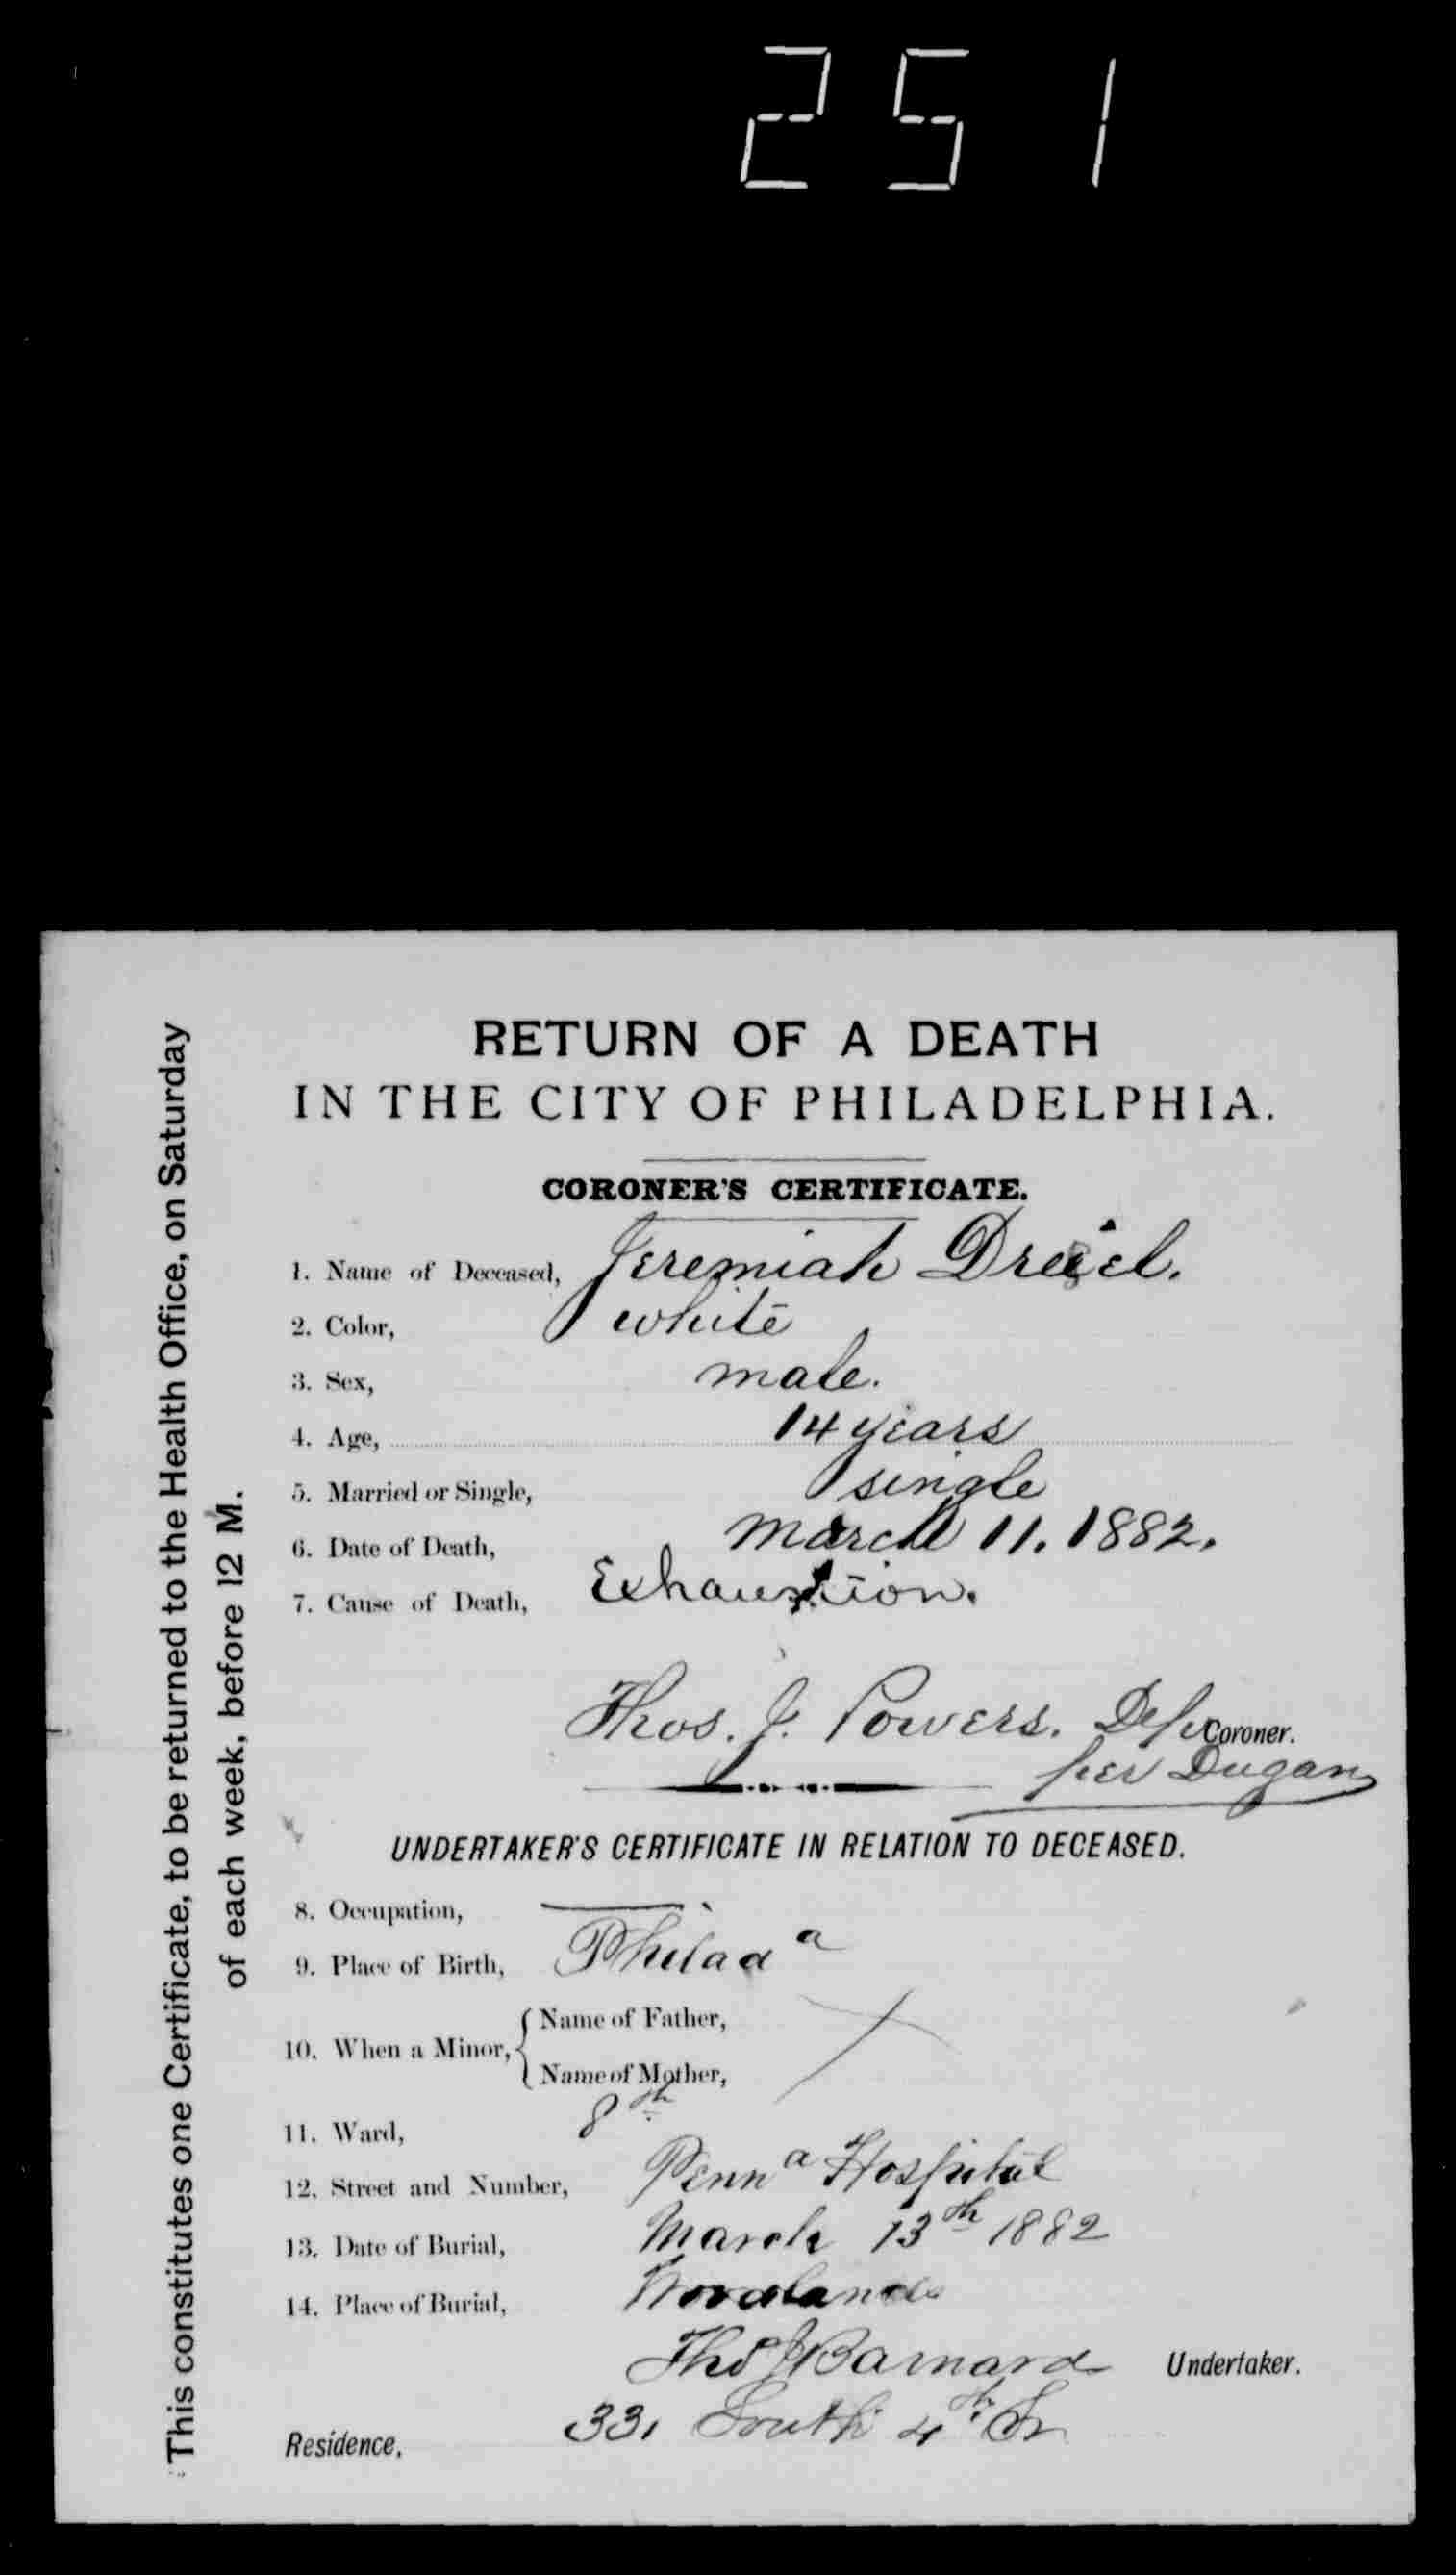 251
RETURN OF A DEATH
IN THE CITY OF PHILADELPHIA.
CORONER'S CERTIFICATE.
1. Name of Deceased, Jeremiah
2. Color, white
3. Sex, male.
4. Age, 14 years
5. Married or Single, single
6. Date of Death, March 11. 1882.
7. Cause of Death, Exhaustion.
Thos. J. Powers. Coroner.
per Dugan
UNDERTAKER'S CERTIFICATE IN RELATION TO DECEASED.
8. Occupation,
9. Place of Birth, Philad a
10. When a Minor, { Name of Father,
Name of Mother,
11. Ward, 8th
12. Street and Number, Penn a Hospital
13. Date of Burial, March 13th 1882
14. Place of Burial, Woodlands
Thos J Barnard Undertaker.
Residence, 331 South 4th St
This constitutes one Certificate, to be returned to the Health Office, on Saturday
of each week, before 12 M.